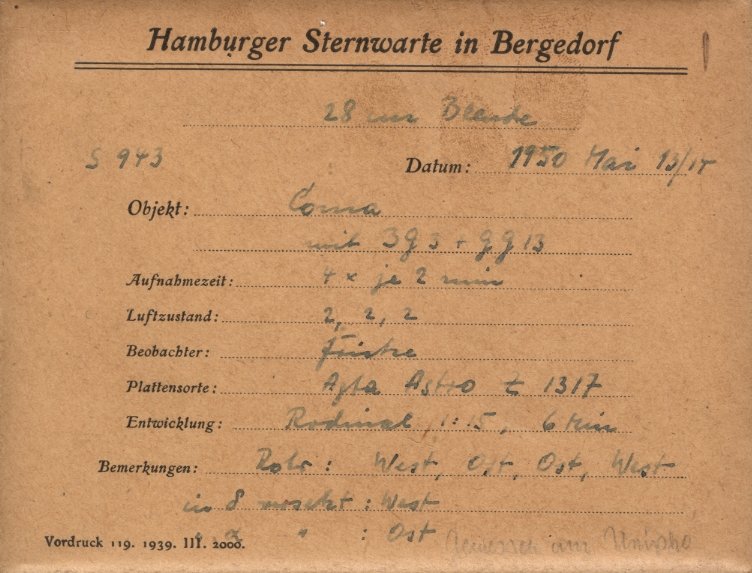 Hamburger Sternwarte in Bergedorf
28 cm Blende
S 943 Datum: 1950 Mai 13/14
Objekt: Coma
mit 3g3 + gg13
Aufnahmezeit: 4 x je 2 min
Luftzustand: 2, 2, 2
Beobachter:
Plattensorte: Agfa Astro 1317
Entwicklung: Rodinal, 1:15, 6 Min
Bemerkungen: Rohr: West, Ost, Ost, West
in δ versetzt: West
" : Ost
Vordruck 119. 1939. III. 2000. Gemessen am